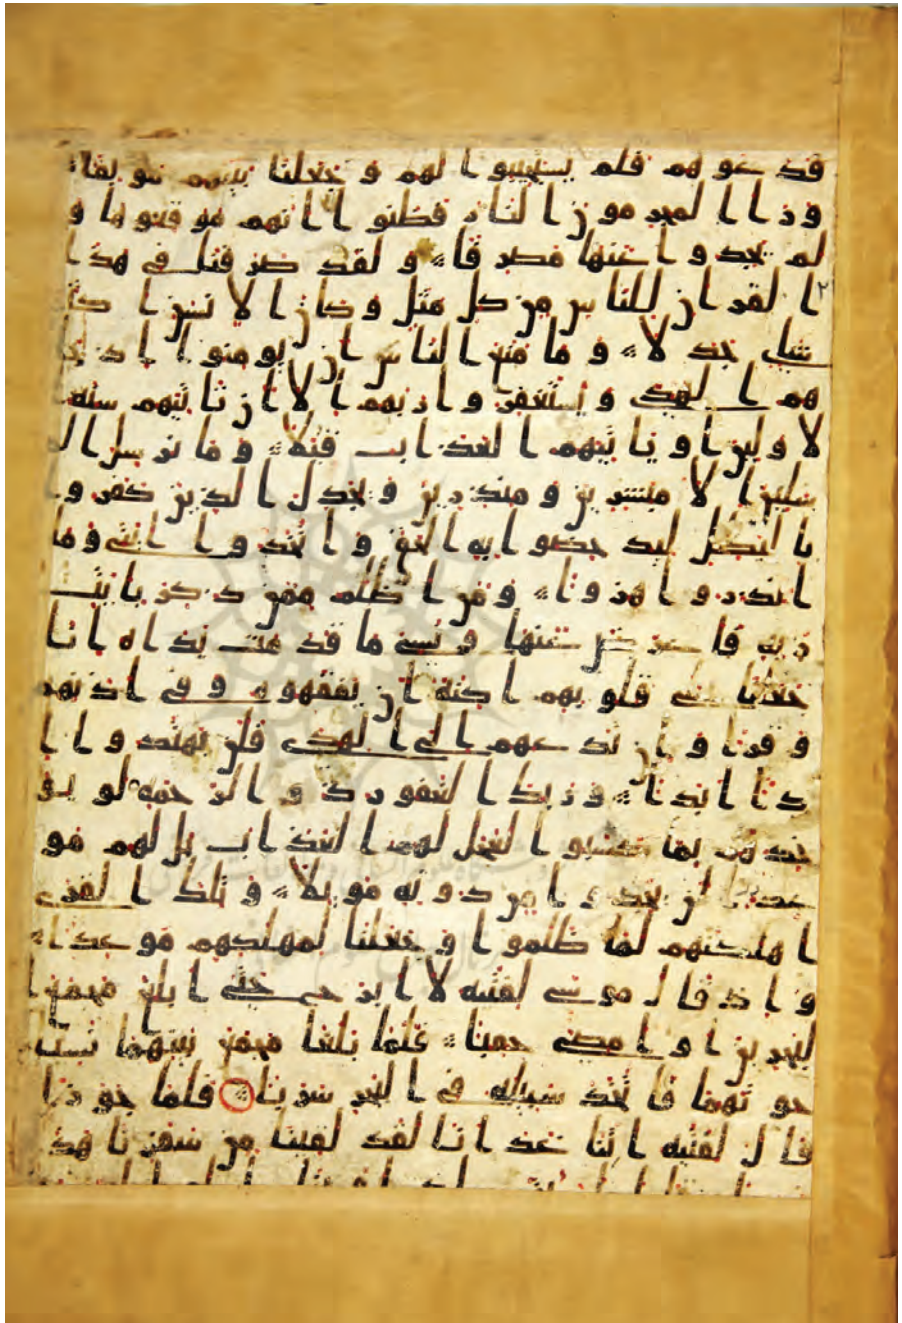 فدعوهم فلم يستجيبوا لهم وجعلنا بينهم موبقا
ورا المجرمون النار فظنوا انهم موقعوها و
لم يجدوا عنها مصرفا ولقد صرفنا في هذا
القران للناس من كل مثل وكان الانسن اكثر
شي جدلا وما منع الناس ان يومنوا اذ جا
هم الهدى ويستغفروا ربهم الا ان تاتيهم سنه ا
لاولين او ياتيهم العذاب قبلا وما نرسل المر
سلين الا مبشرين ومنذرين ويجدل الذين كفروا
بالبطل ليدحضوا به الحق واتخذوا ايتي وما
انذروا هزوا ومن اظلم ممن ذكر بايت
ربه فاعرض عنها ونسي ما قدمت يداه انا
جعلنا على قلوبهم اكنه ان يفقهوه وفي اذنهم
وقرا وان تدعهم الى الهدى فلن يهتدوا ا
ذا ابدا وربك الغفور ذو الرحمه لو يو
خذهم بما كسبوا لعجل لهم العذاب بل لهم مو
عد لن يجدوا من دونه مويلا وتلك القرى
اهلكنهم لما ظلموا وجعلنا لمهلكهم موعدا
واذ قال موسى لفتيه لا ابرح حتى ابلغ مجمع ا
لبحرين او امضي حقبا فلما بلغا مجمع بينهما نسيا
حوتهما فاتخذ سبيله في البحر سربا فلما جوزا
قال لفتيه اتنا غدانا لقد لقينا من سفرنا هذا